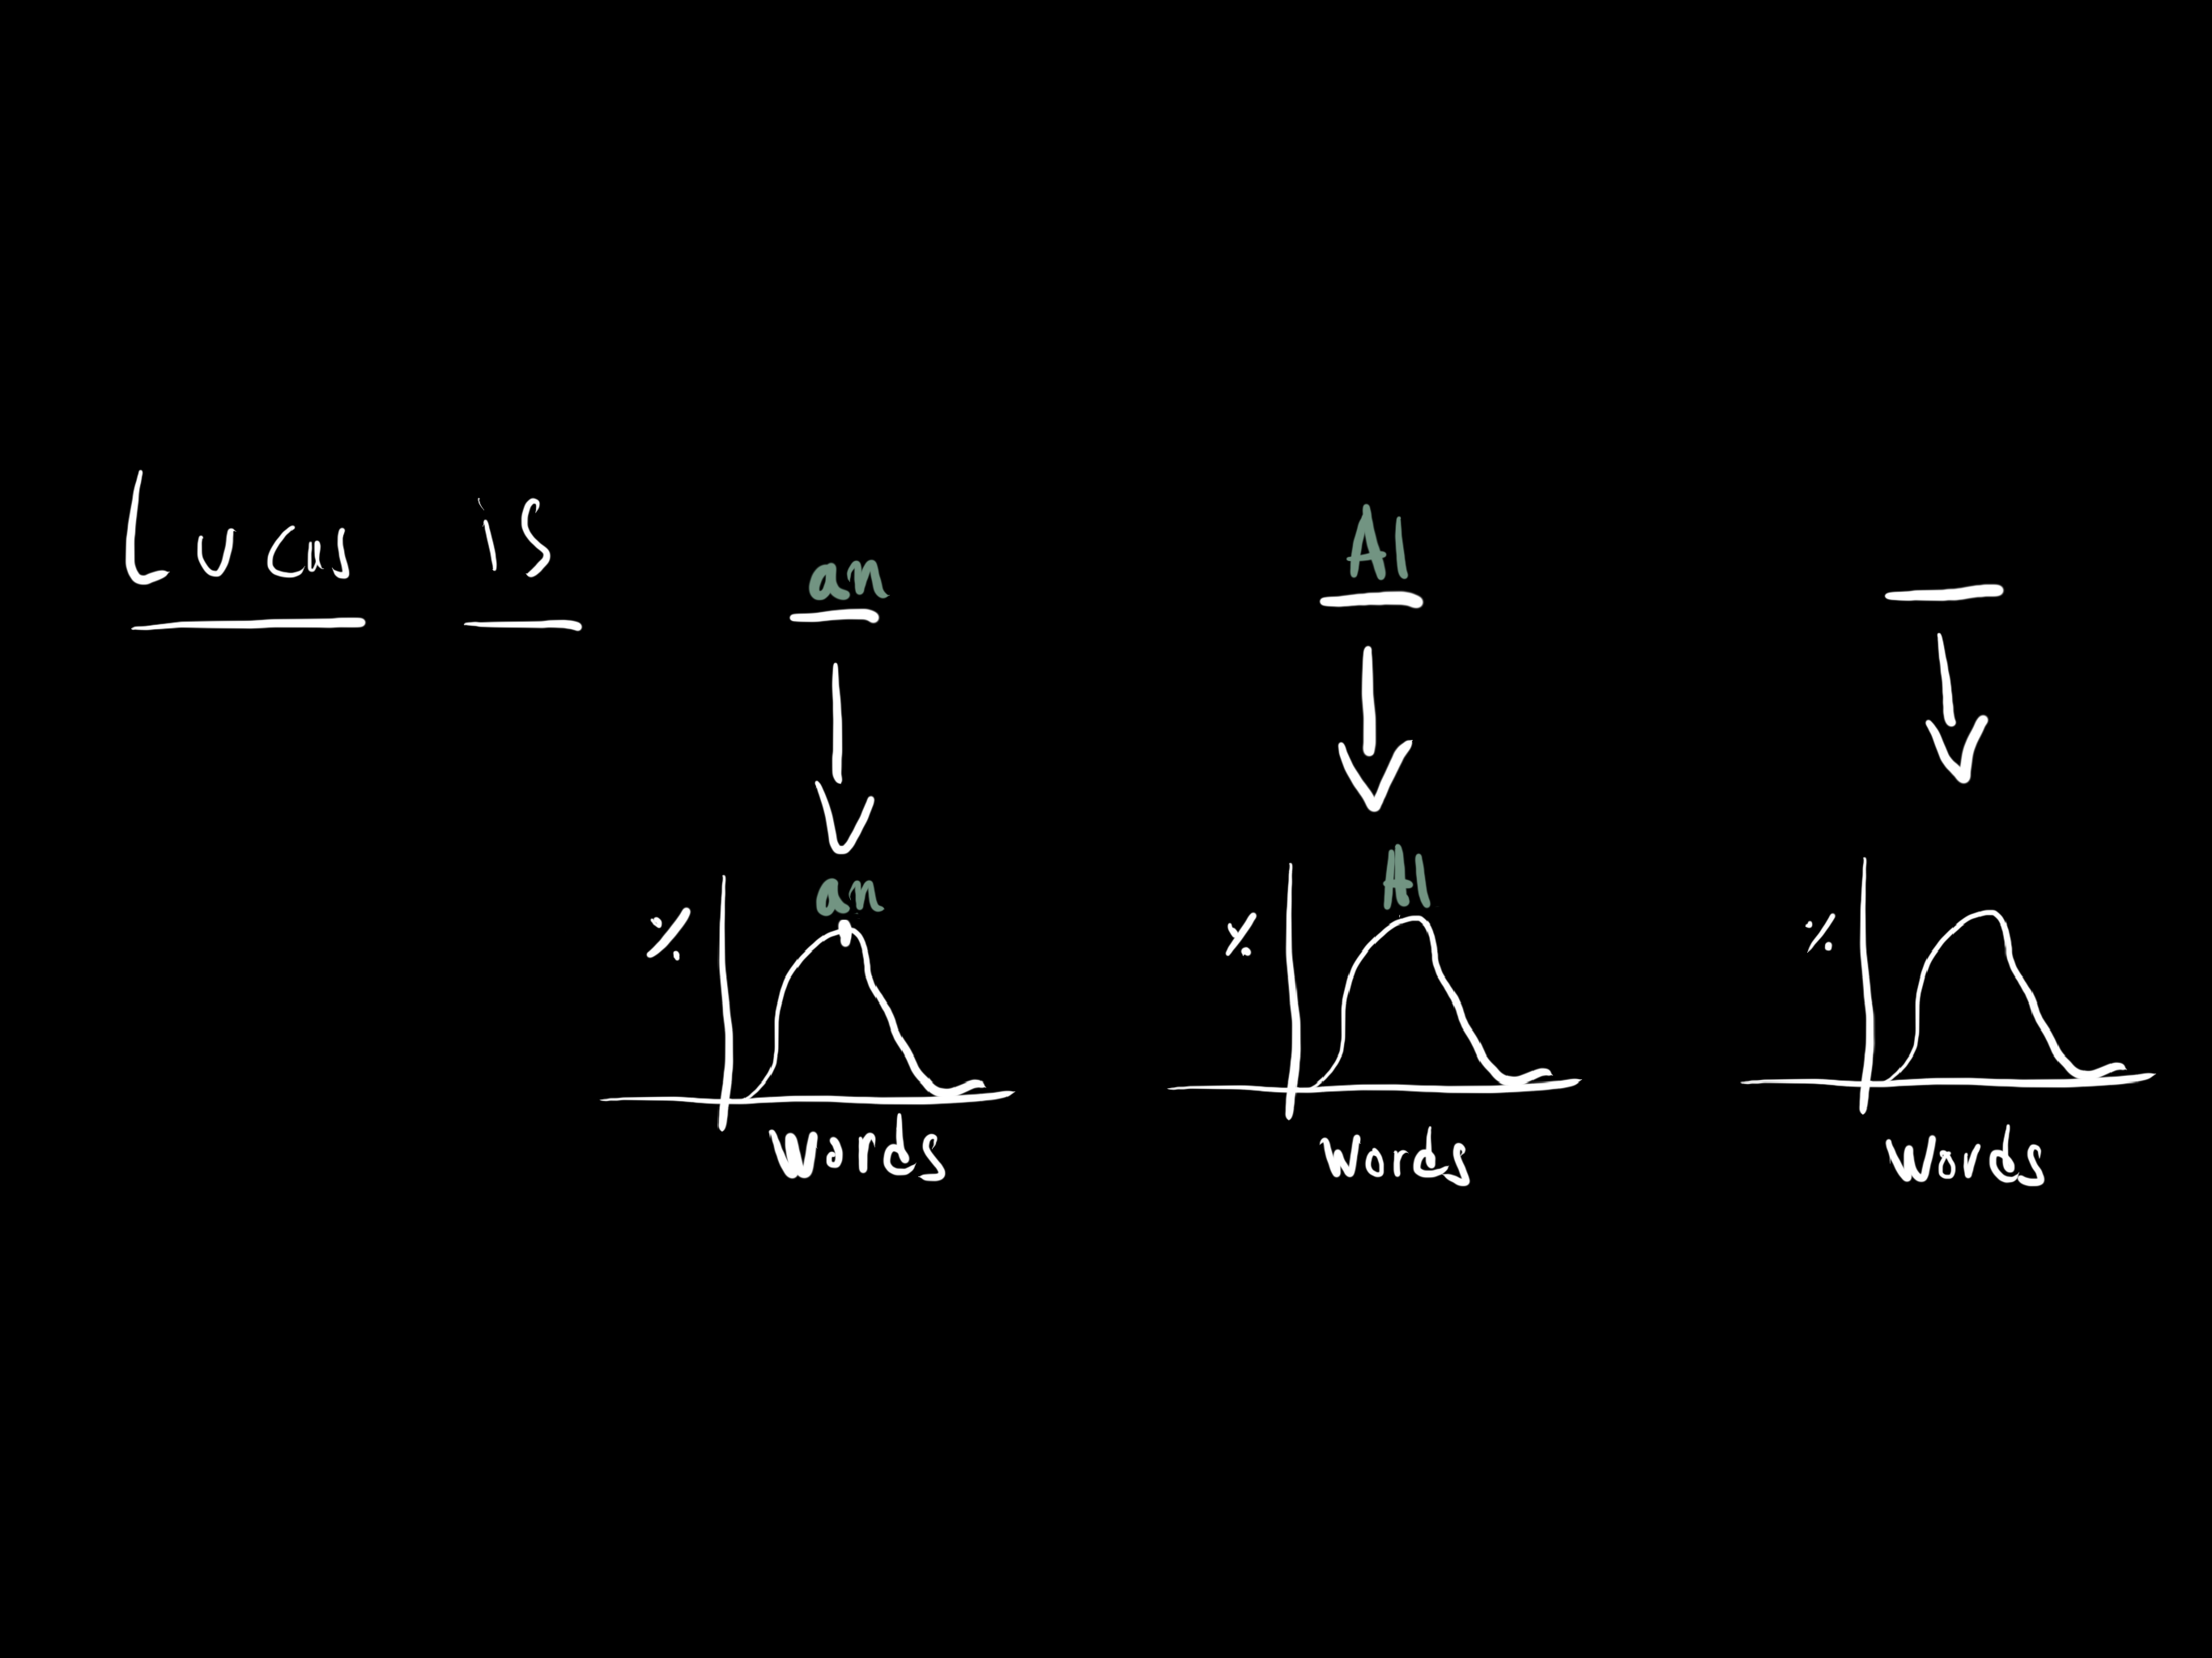 Lucas is an AI
an AI
% % %
Words Words Words